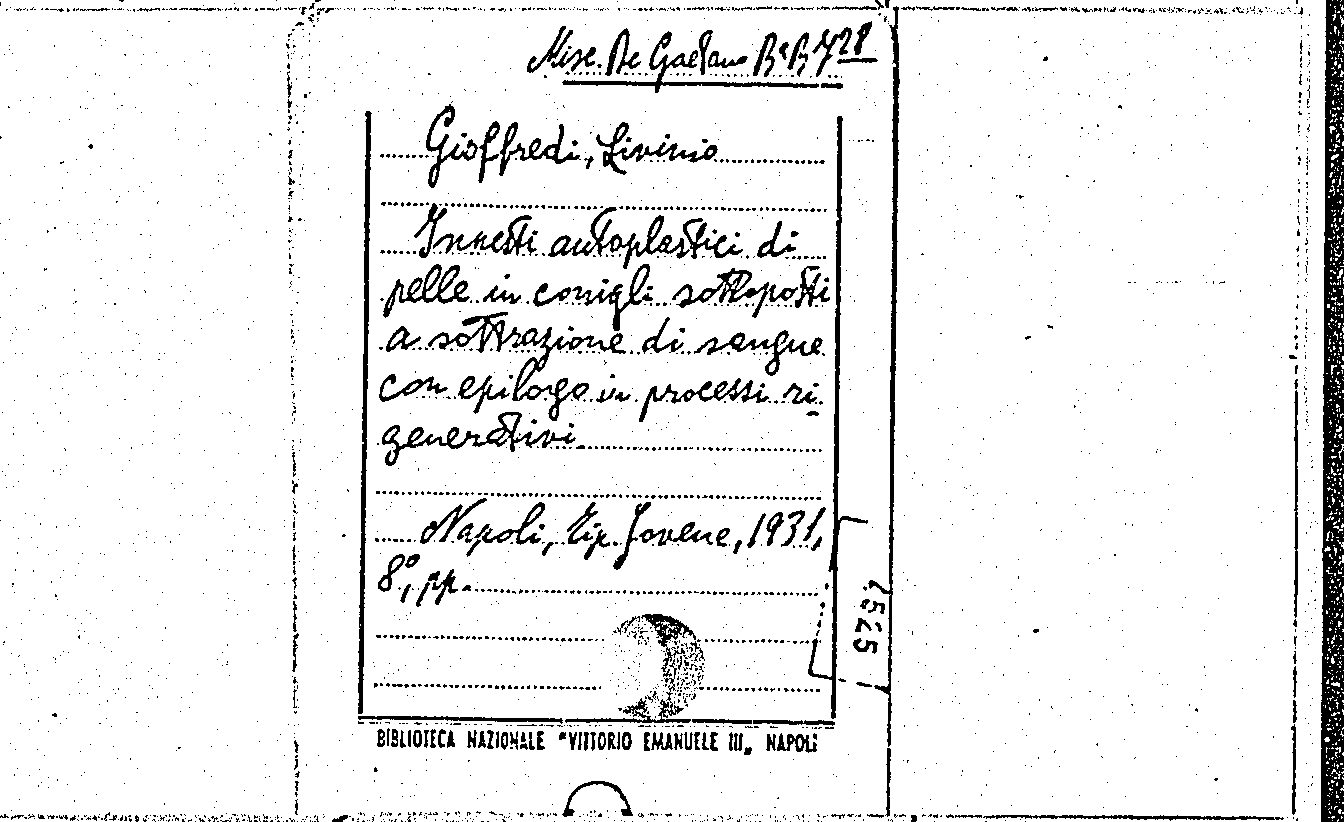 Misc. De Gaetano B^a B 7 28
Gioffredi, Livinio
Innesti autoplastici di
pelle in conigli sottoposti
a sottrazione di sangue
con epilogo in processi ri
generativi.
Napoli, Tip. Jovene, 1931,
8°, pp.
BIBLIOTECA NAZIONALE "VITTORIO EMANUELE III„ NAPOLI